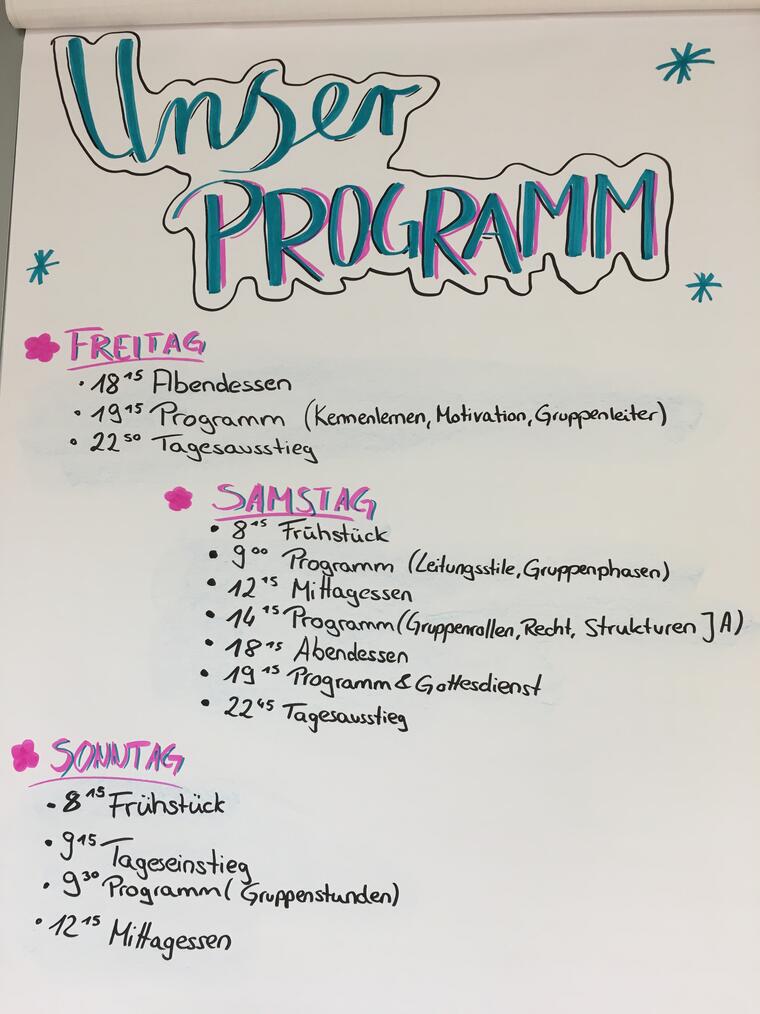 Unser
PROGRAMM
FREITAG
• 18 15 Abendessen
• 19 15 Programm (Kennenlernen, Motivation, Gruppenleiter)
• 22 50 Tagesausstieg
SAMSTAG
• 8 15 Frühstück
• 9 00 Programm (Leitungsstile, Gruppenphasen)
• 12 15 Mittagessen
• 14 15 Programm (Gruppenrollen, Recht, Strukturen JA)
• 18 15 Abendessen
• 19 15 Programm & Gottesdienst
• 22 45 Tagesausstieg
SONNTAG
• 8 15 Frühstück
• 9 15 Tageseinstieg
• 9 30 Programm (Gruppenstunden)
• 12 15 Mittagessen